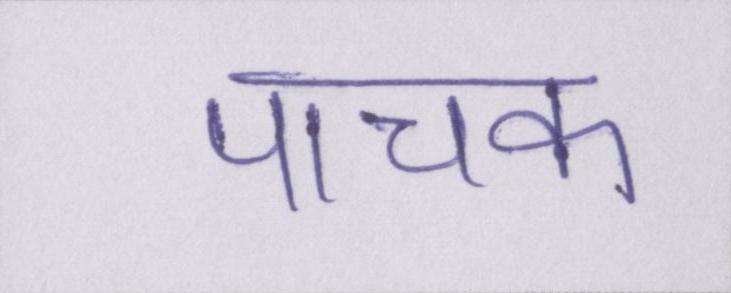 पाचक